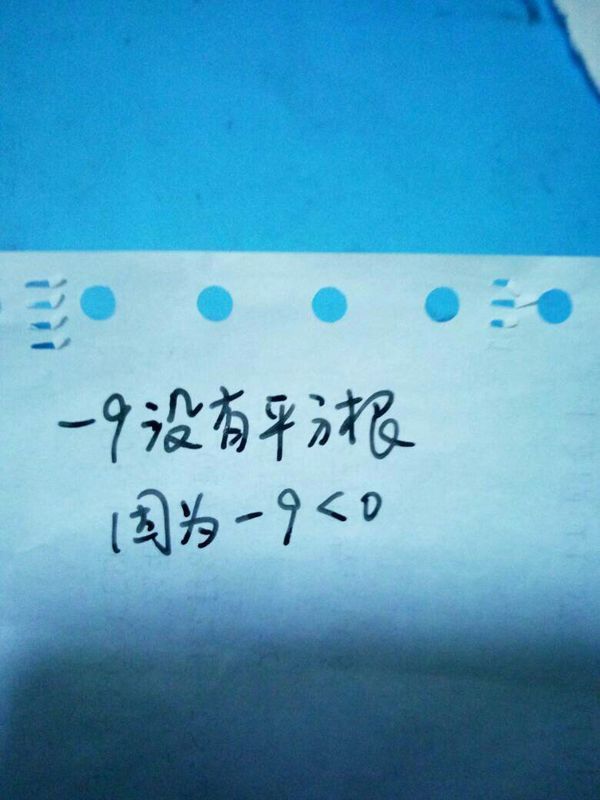 -9没有平方根
因为-9<0